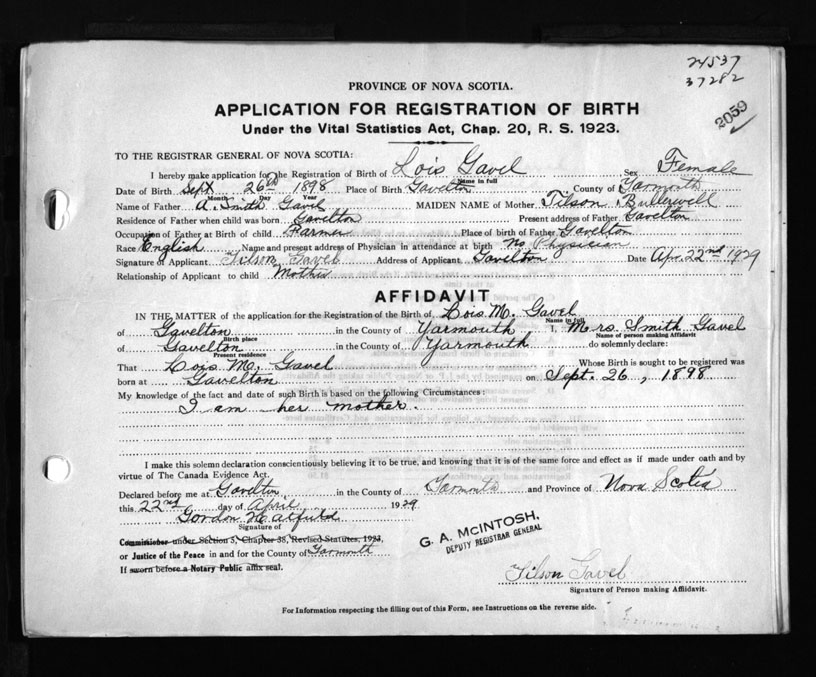 24537
37282
2059
PROVINCE OF NOVA SCOTIA.
APPLICATION FOR REGISTRATION OF BIRTH
Under the Vital Statistics Act, Chap. 20, R. S. 1923.
TO THE REGISTRAR GENERAL OF NOVA SCOTIA:
I hereby make application for the Registration of Birth of Lois Gavel Sex Female
Name in full
Date of Birth Sept 26th 1898 Place of Birth Gavelton County of Yarmouth
Month Day Year
Name of Father A. Smith Gavel MAIDEN NAME of Mother Tilson Butlerwell
Residence of Father when child was born Gavelton Present address of Father Gavelton
Occupation of Father at Birth of child Farmer Place of birth of Father Gavelton
Race English Name and present address of Physician in attendance at birth No Physician
Signature of Applicant Tilson Gavel Address of Applicant Gavelton Date Apr. 22nd 1929
Relationship of Applicant to child Mother
AFFIDAVIT
IN THE MATTER of the application for the Registration of the Birth of Lois M. Gavel
Name in full
of Gavelton in the County of Yarmouth I, Mrs. Smith Gavel
Birth place Name of person making Affidavit
of Gavelton in the County of Yarmouth do solemnly declare:
Present residence
That Lois M. Gavel Whose Birth is sought to be registered was
born at Gavelton on Sept. 26, 1898
My knowledge of the fact and date of such Birth is based on the following Circumstances:
I am her mother.
I make this solemn declaration conscientiously believing it to be true, and knowing that it is of the same force and effect as if made under oath and by
virtue of The Canada Evidence Act.
Declared before me at Gavelton in the County of Yarmouth and Province of Nova Scotia
this 22nd day of April 1929
Gordon Hatfield
Signature of
Commissioner under Section 3, Chapter 38, Revised Statutes, 1923,
or Justice of the Peace in and for the County of Yarmouth
If sworn before a Notary Public affix seal.
G. A. McINTOSH,
DEPUTY REGISTRAR GENERAL
Tilson Gavel
Signature of Person making Affidavit.
For Information respecting the filling out of this Form, see Instructions on the reverse side.